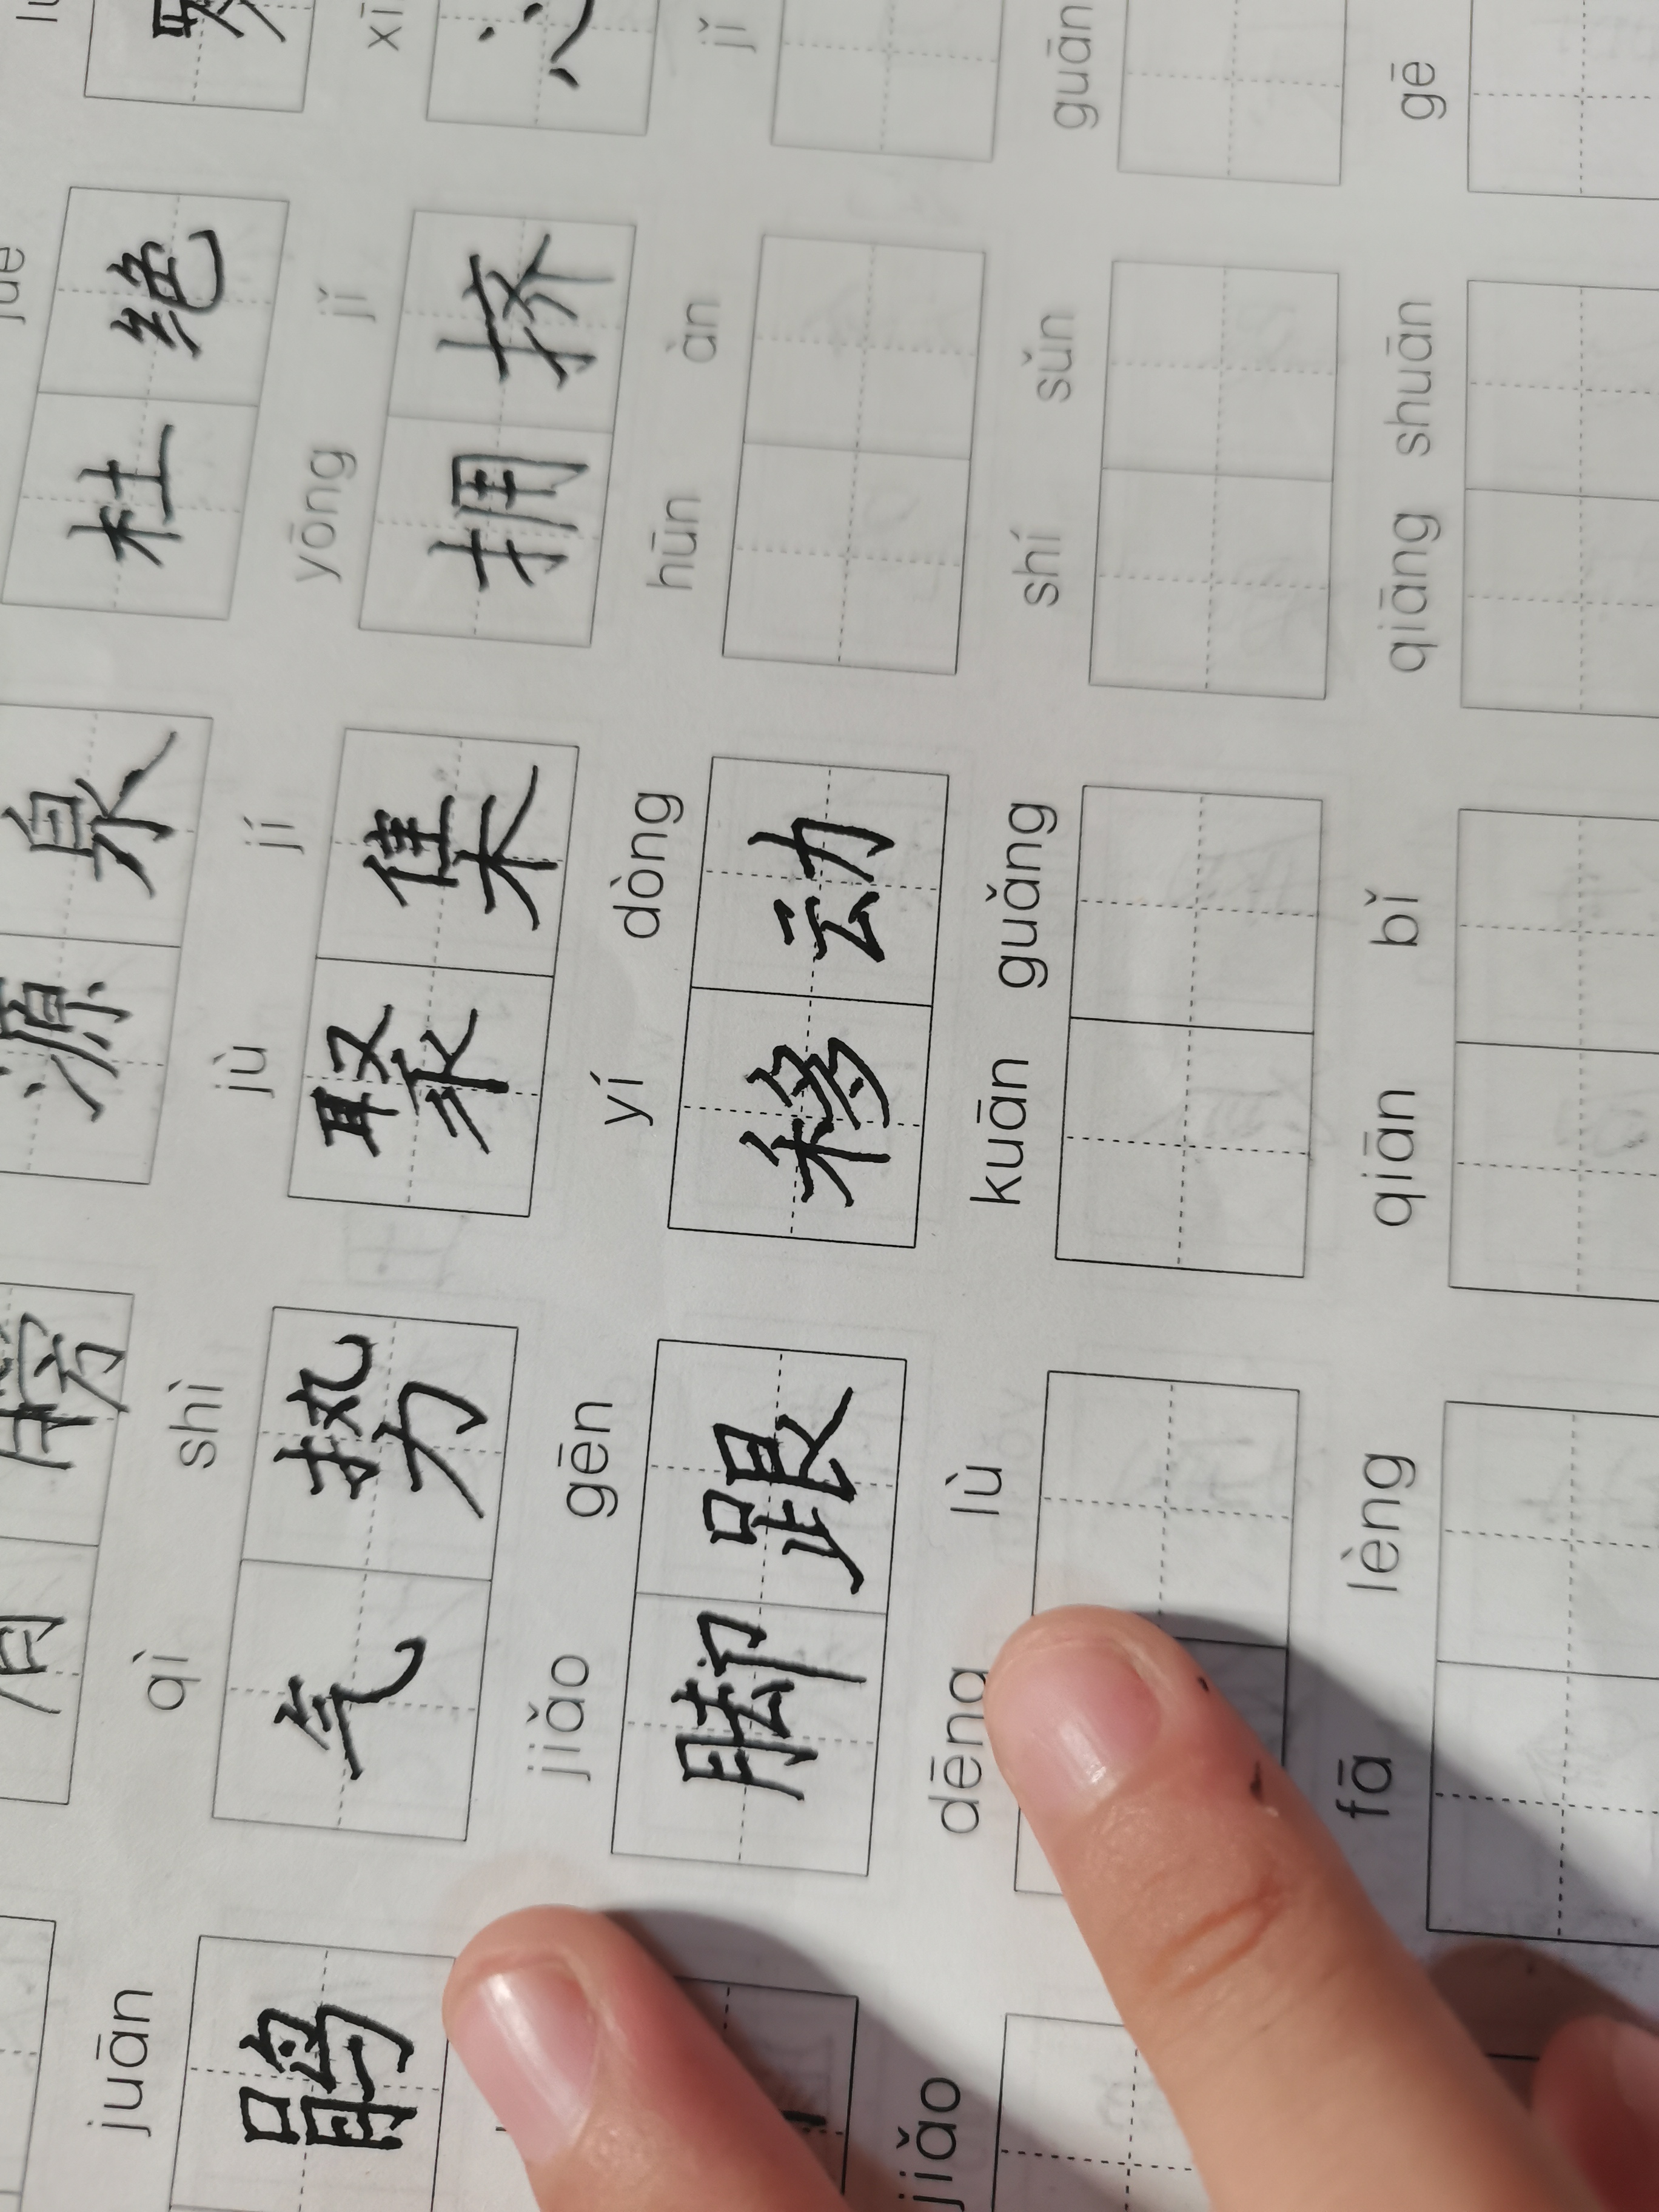 膀 源泉 杜绝
juān qì shì jù jí yōng jǐ
鹃 气势 聚集 拥挤
jiǎo gēn yí dòng hūn àn jǐ
脚跟 移动
jiǎo dēng lù kuān guǎng shí sǔn guān
fā lèng qiān bǐ qiāng shuān gē